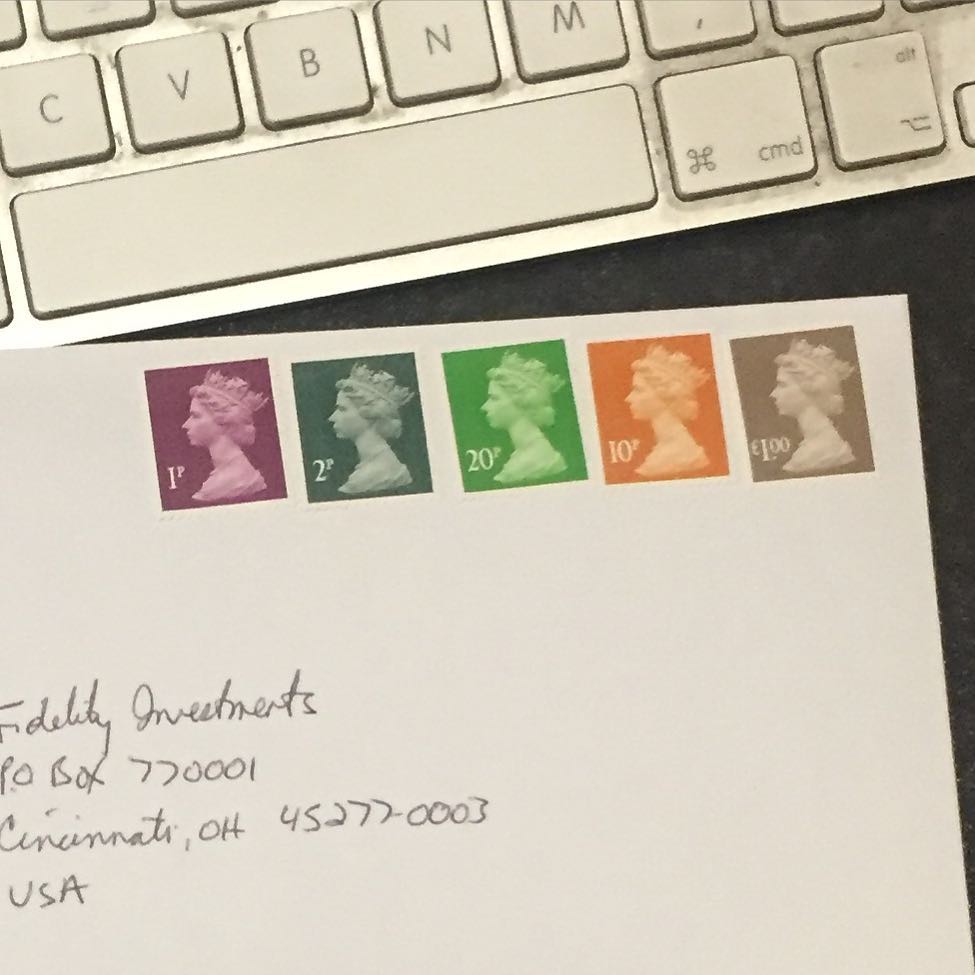 C V B N M ,
alt
⌘ cmd ⌥
1P 2P 20P 10P £1.00
Fidelity Investments
P.O Box 770001
Cincinnati, OH 45277-0003
USA